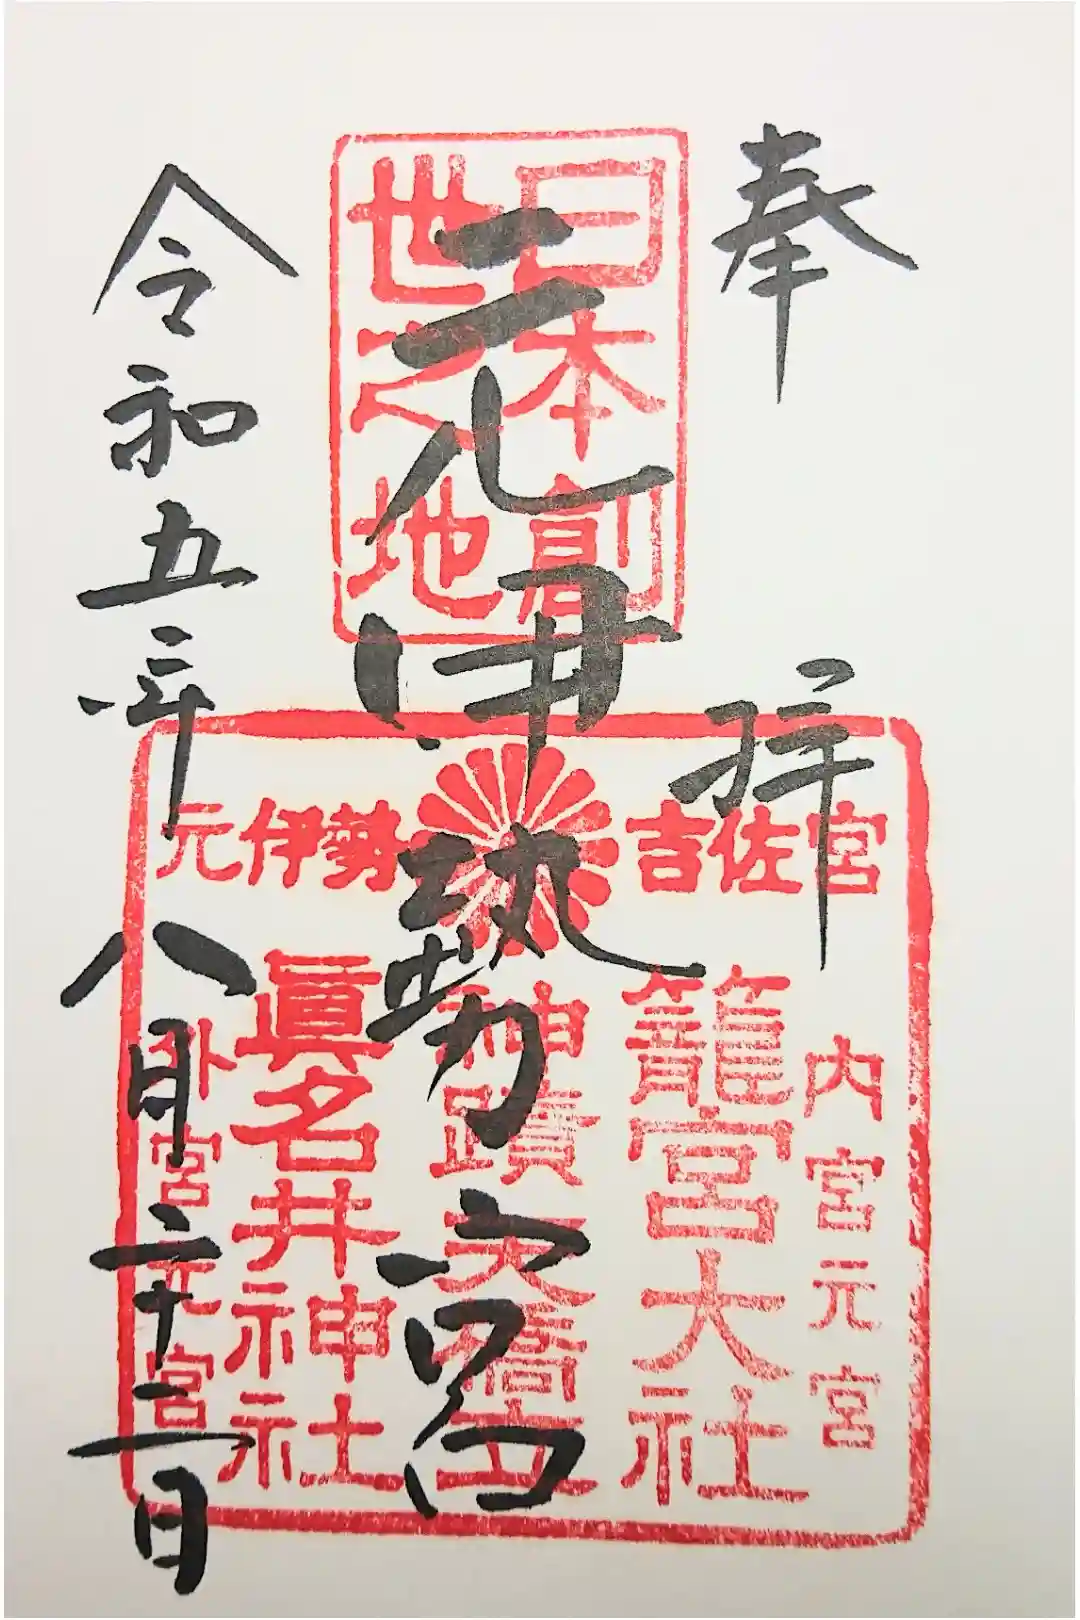 奉拝
元伊勢之宮
令和五年八月二十二日
日本創
世之地
元伊勢
吉佐宮
内宮元宮
籠宮大社
神蹟天橋立
眞名井神社
外宮元宮